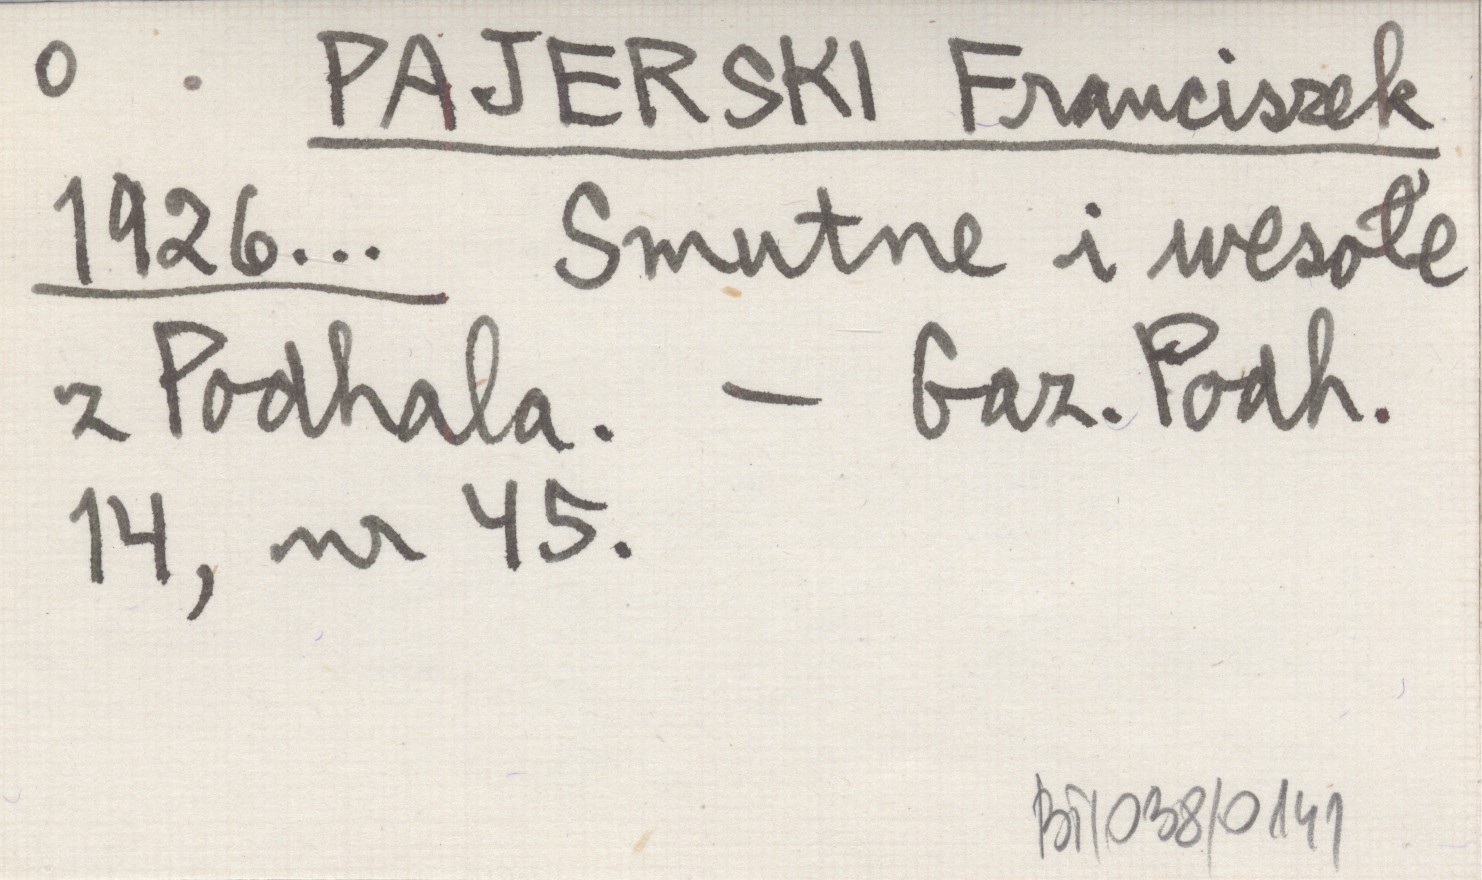 o . PAJERSKI Franciszek
1926... Smutne i wesołe
z Podhala. — Gaz. Podh.
14, nr 45.
BI/038/0141